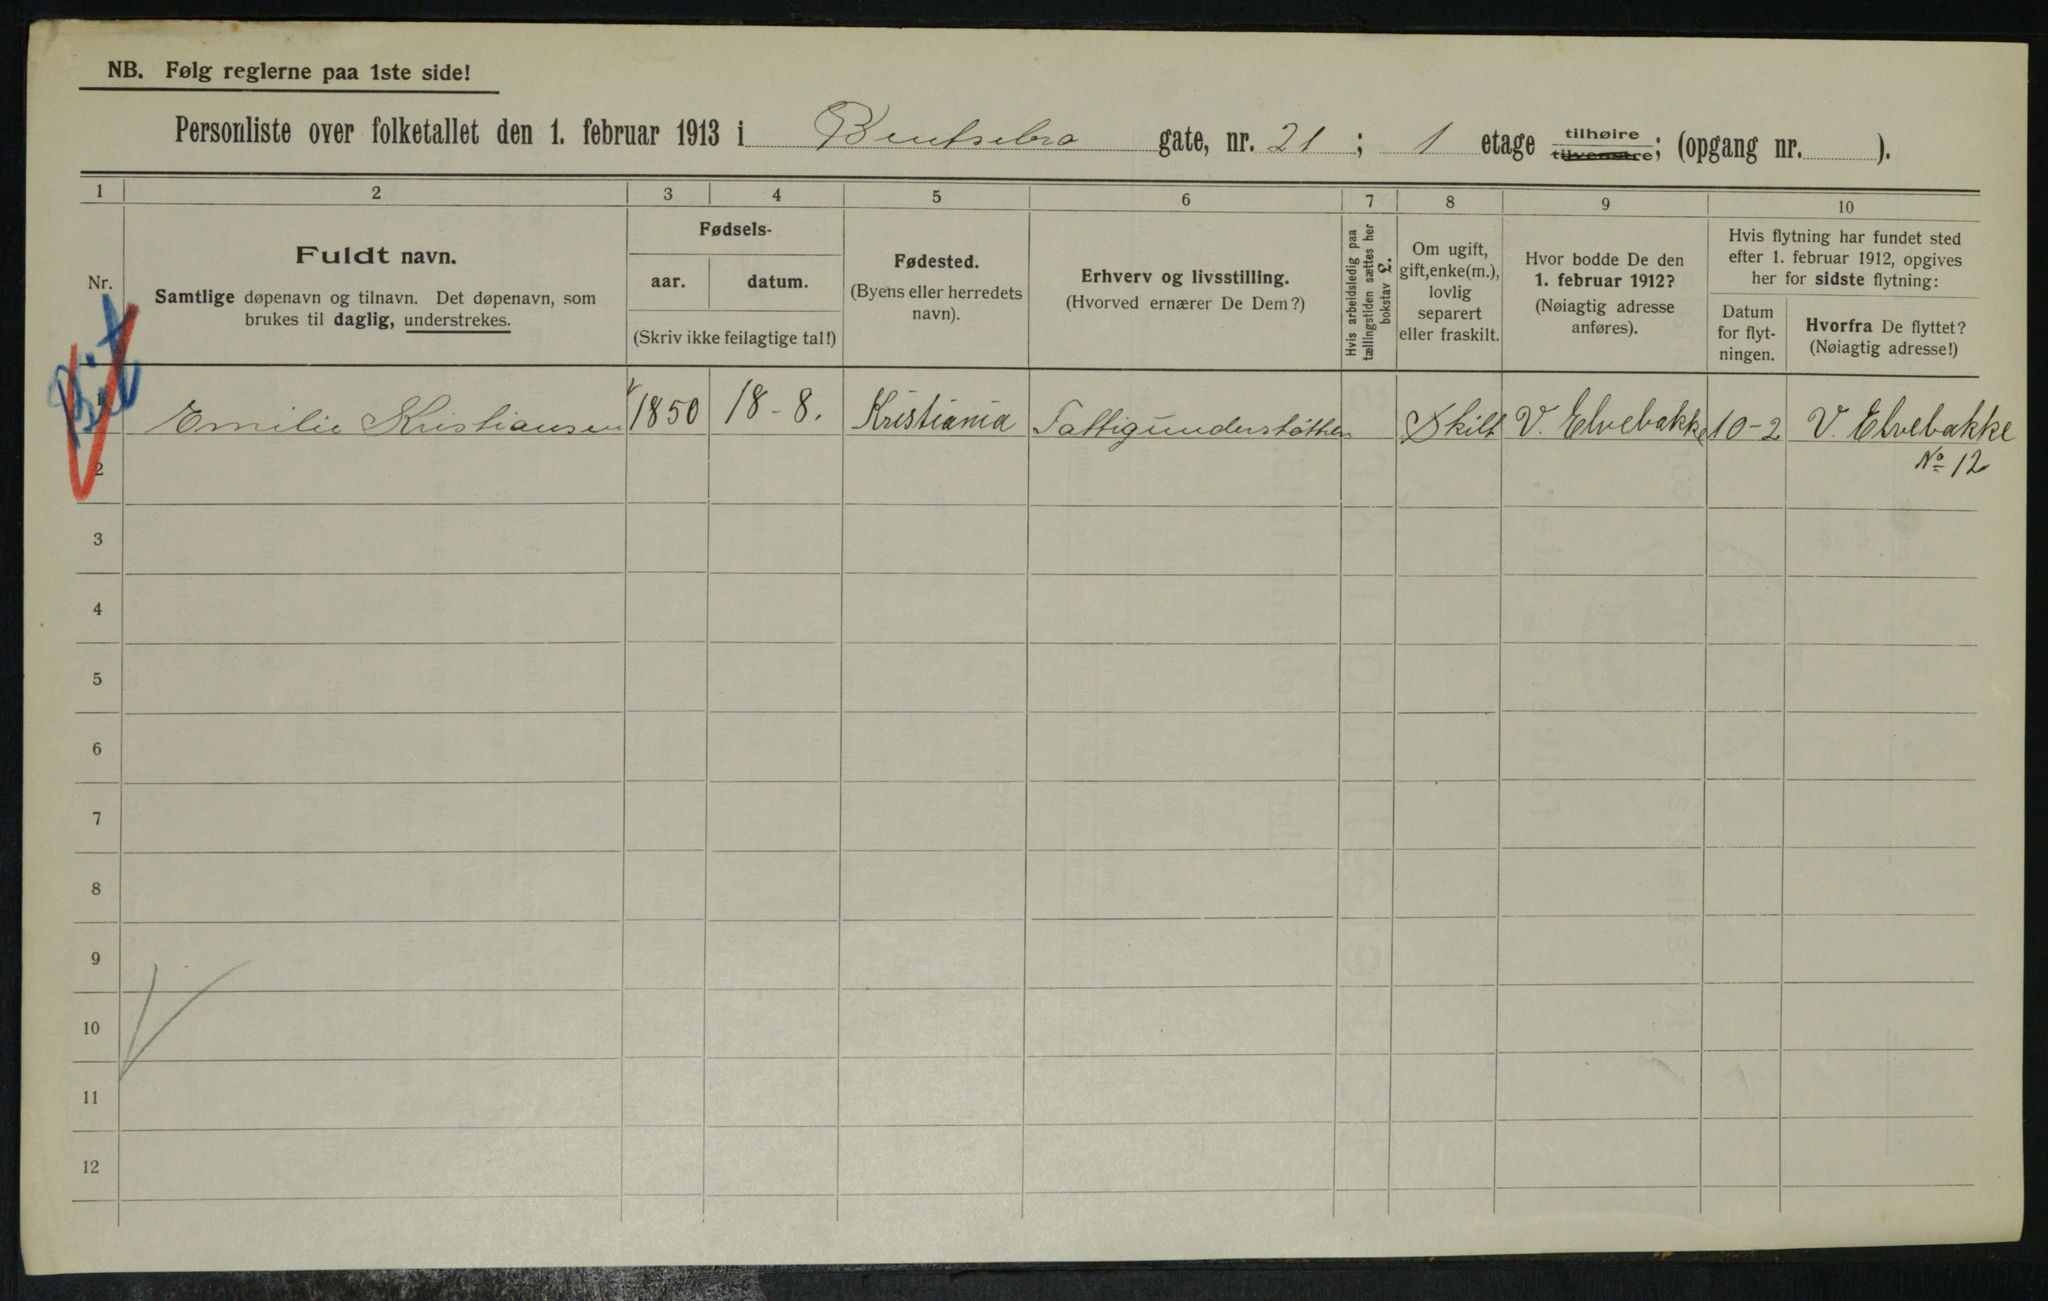 NB. Følg reglerne paa 1ste side!
Personliste over folketallet den 1. februar 1913 i Bentsebro gate, nr. 21 ; 1 etage tilhøire tilvenstre; (opgang nr. ).
1 2 3 4 5 6 7 8 9 10
Nr.
Fuldt navn.
Samtlige døpenavn og tilnavn. Det døpenavn, som
brukes til daglig, understrekes.
Fødsels-
aar. datum.
(Skriv ikke feilagtige tal!)
Fødested.
(Byens eller herredets
navn).
Erhverv og livsstilling.
(Hvorved ernærer De Dem?)
Hvis arbeidsledig paa
tællingstiden sættes her
bokstav L.
Om ugift,
gift, enke(m.),
lovlig
separert
eller fraskilt.
Hvor bodde De den
1. februar 1912?
(Nøiagtig adresse
anføres).
Hvis flytning har fundet sted
efter 1. februar 1912, opgives
her for sidste flytning:
Datum
for flyt-
ningen.
Hvorfra De flyttet?
(Nøiagtig adresse!)
Bit
1 Emilie Kristiansen 1850 18-8. Kristiania Fattigunderstøtten Skilt V. Elvebakke 10-2 V. Elvebakke
No 12
2
3
4
5
6
7
8
9
10
11
12